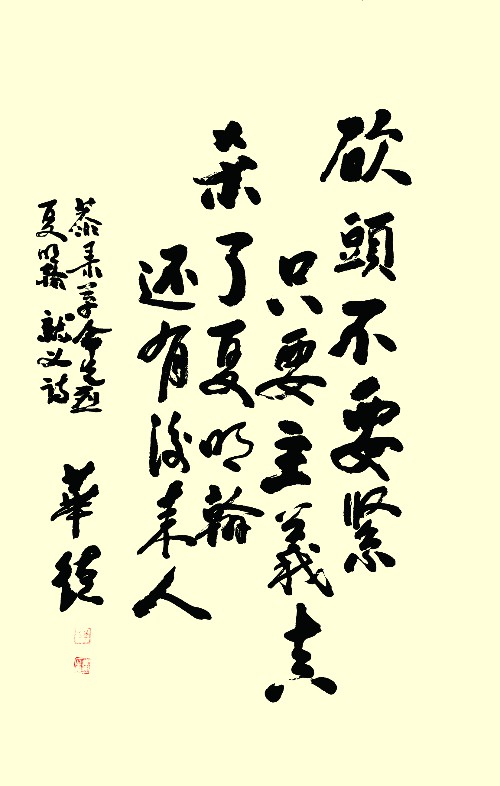 砍頭不要緊
只要主義真
杀了夏明翰
还有後来人
恭录革命先烈
夏明翰就义诗
華德